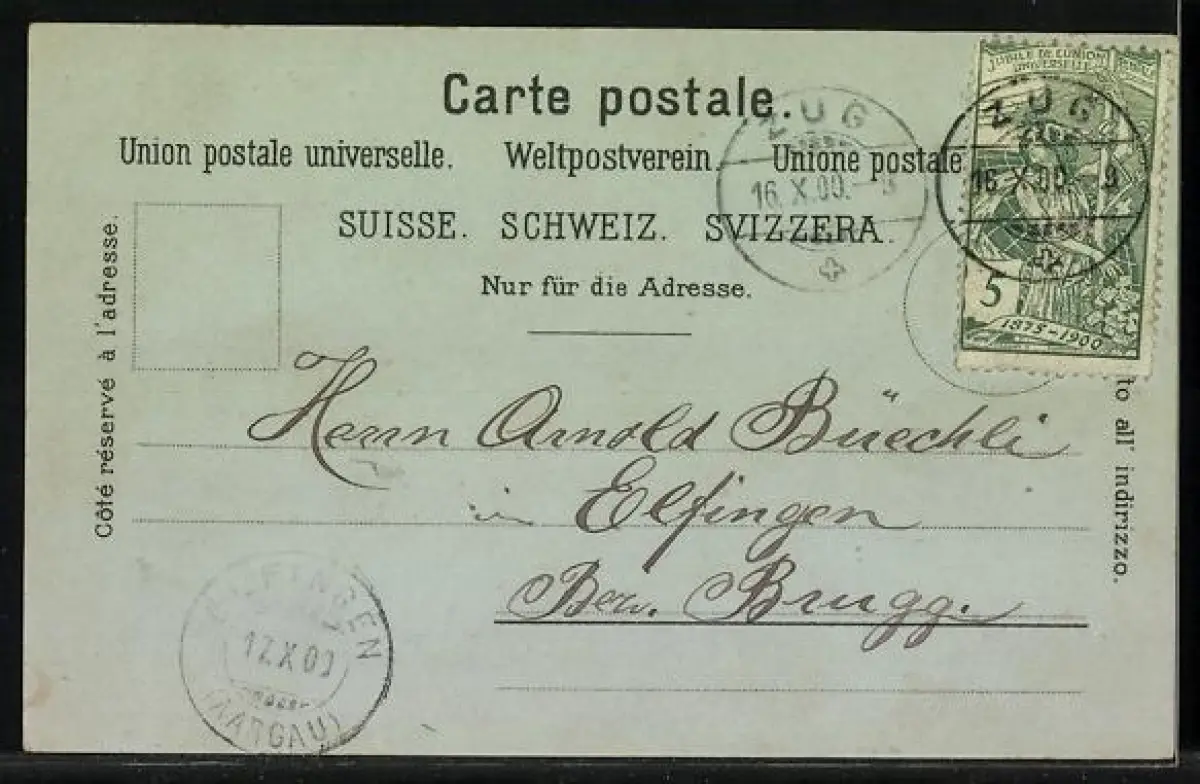 Carte postale.
Union postale universelle. Weltpostverein. Unione postale
SUISSE. SCHWEIZ. SVIZZERA.
Nur für die Adresse.
Côté réservé à l'adresse.
to all' indirizzo.
JUBILÉ DE L'UNION
UNIVERSELLE
5
1875-1900
ZUG
16.X.00.
ZUG
16.X.00. 9
Herrn Arnold Büechli
in Elfingen
Bez. Brugg.
ELFINGEN
17.X.00
(AARGAU)